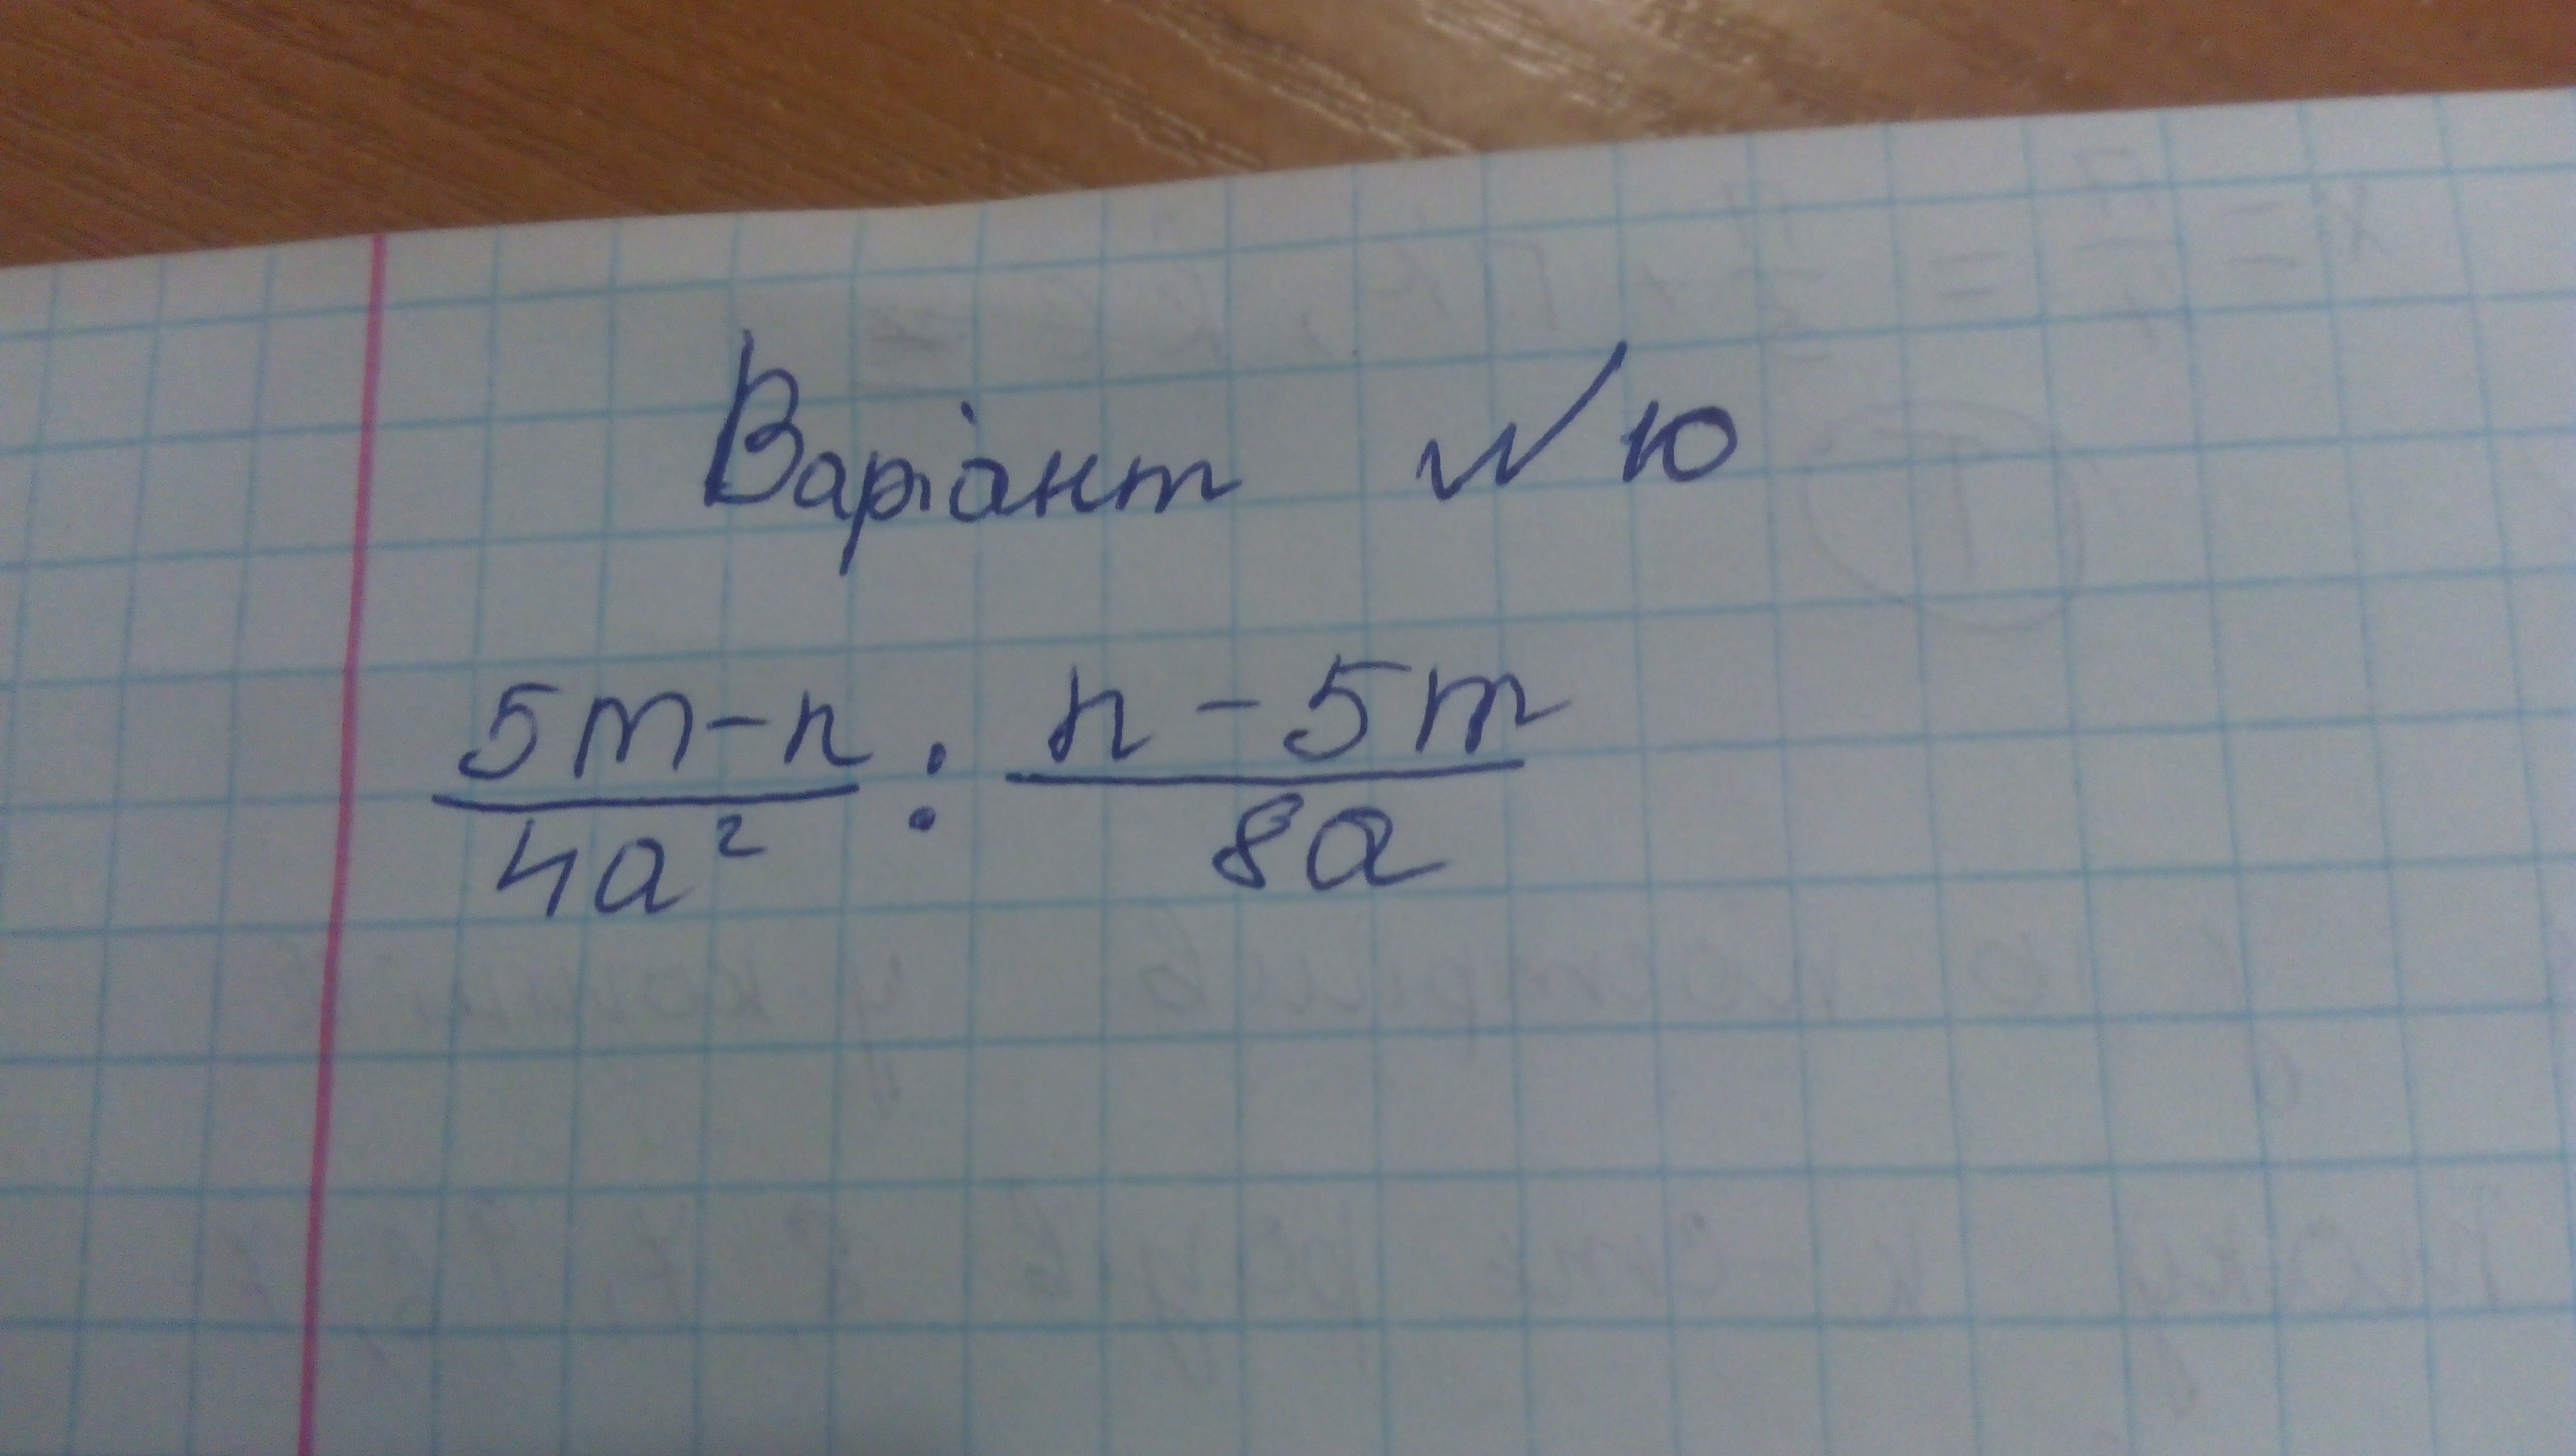 Варіант №10
5m-n/4a² : n-5m/8a